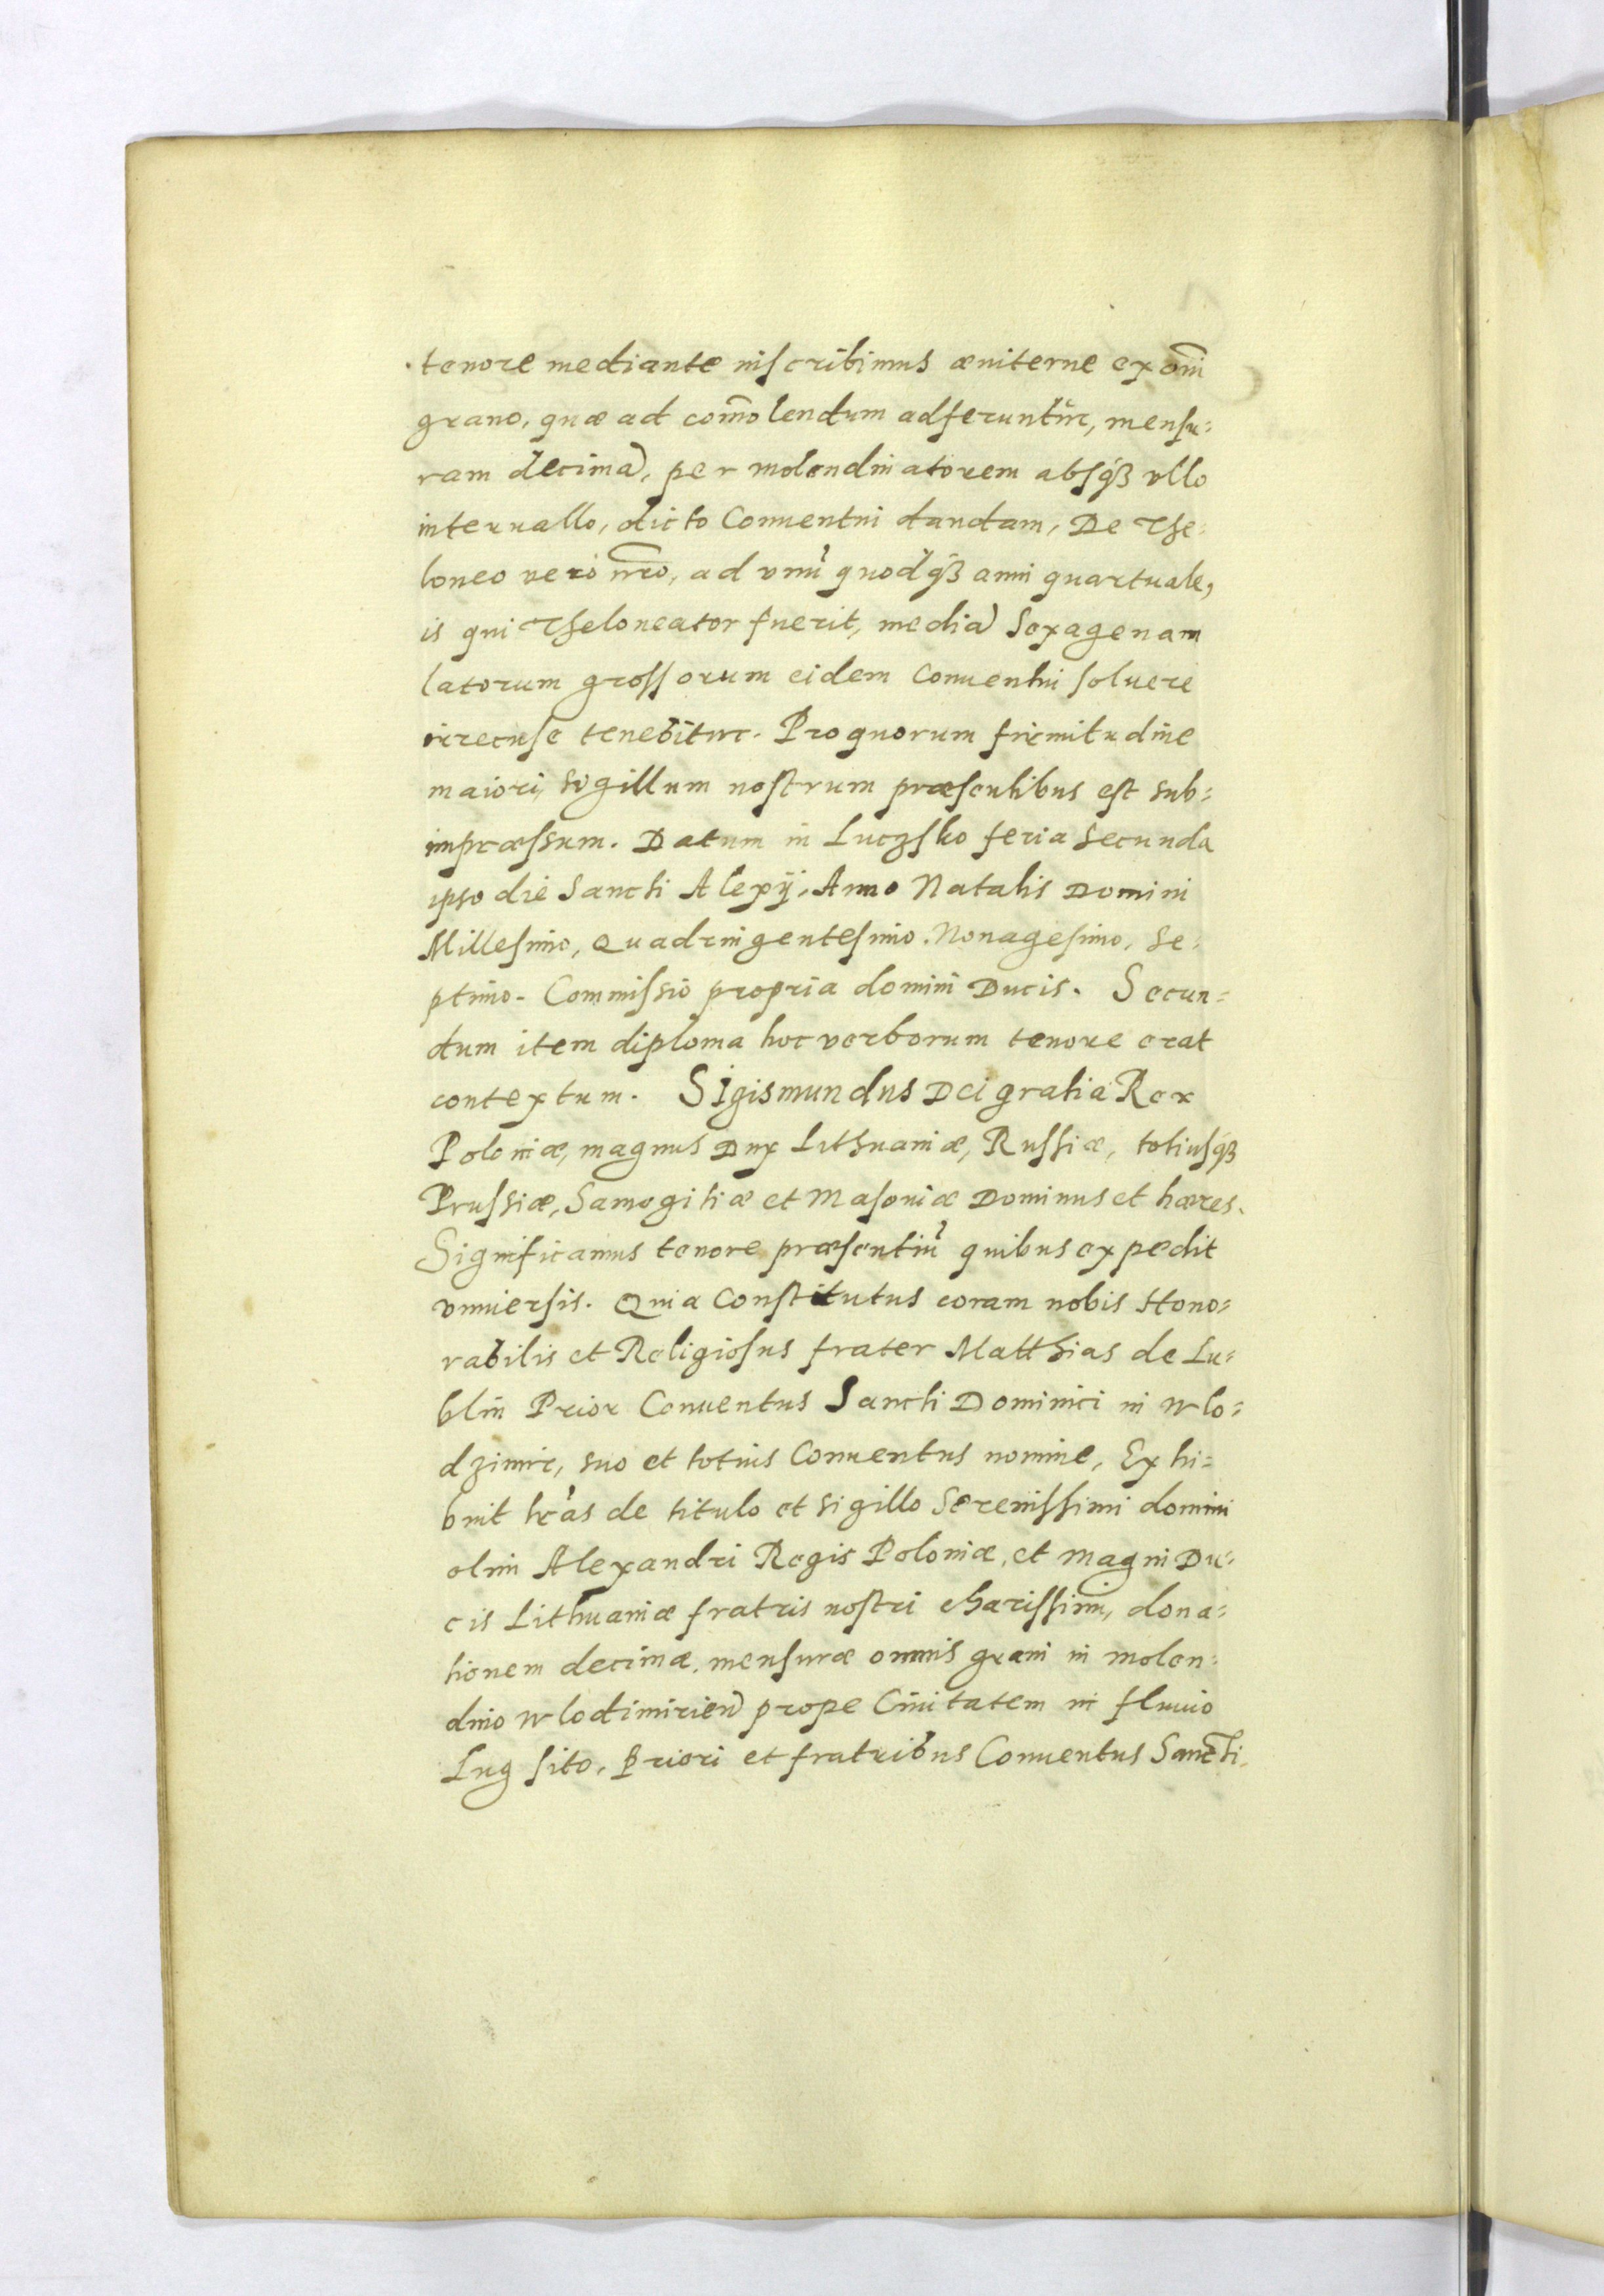 tenore mediante inscribimus æuiterne ex om̃i
grano, quæ ad com̃olendum adferuntur, mensu=
ram decimã, per molendinatorem absq3 vllo
interuallo, dicto Conuentui dandam, De The=
loneo vero nr̃o, ad vnũ quodq3 anni quartuale,
is qui Theloneator fuerit, mediã Sexagenam
latorum grossorum eidem Conuentui soluere
irrecuse tenebitur. Pro quorum firmitudine
maiori, sigillum nostrum præsentibus est sub=
impræssum. Datum in Luczsko feria Secunda
ipso die Sancti Alexij, Anno Natalis Domini
Millesimo, Quadringentesimo. Nonagesimo, Se=
ptimo. Commissio propria domini Ducis. Secun=
dum item diploma hoc verborum tenore erat
contextum. Sigismundus Dei gratia Rex
Poloniæ, magnus Dux Lithuaniæ, Russiæ, totiusq3
Prussiæ, Samogitiæ et Masouiæ Dominus et hæres.
Significamus tenore præsentiũ quibus expedit
vniuersis. Quia Constitutus coram nobis Hono=
rabilis et Religiosus frater Matthias de Lu=
blin Prior Conuentus Sancti Dominici in Wlo=
dzimir, suo et totius Conuentus nomine, Exhi=
buit lr̃as de titulo et sigillo Serenissimi domini
olim Alexandri Regis Poloniæ, et magni Du=
cis Lithuaniæ fratris nostri charissimi, dona=
tionem decimæ, mensuræ omnis grani in molen=
dino Wlodimirien̄ prope Ciuitatem in fluuio
Lug sito, Priori et fratribus Conuentus Sancti